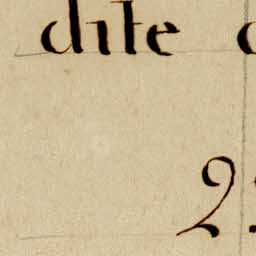 dite
2